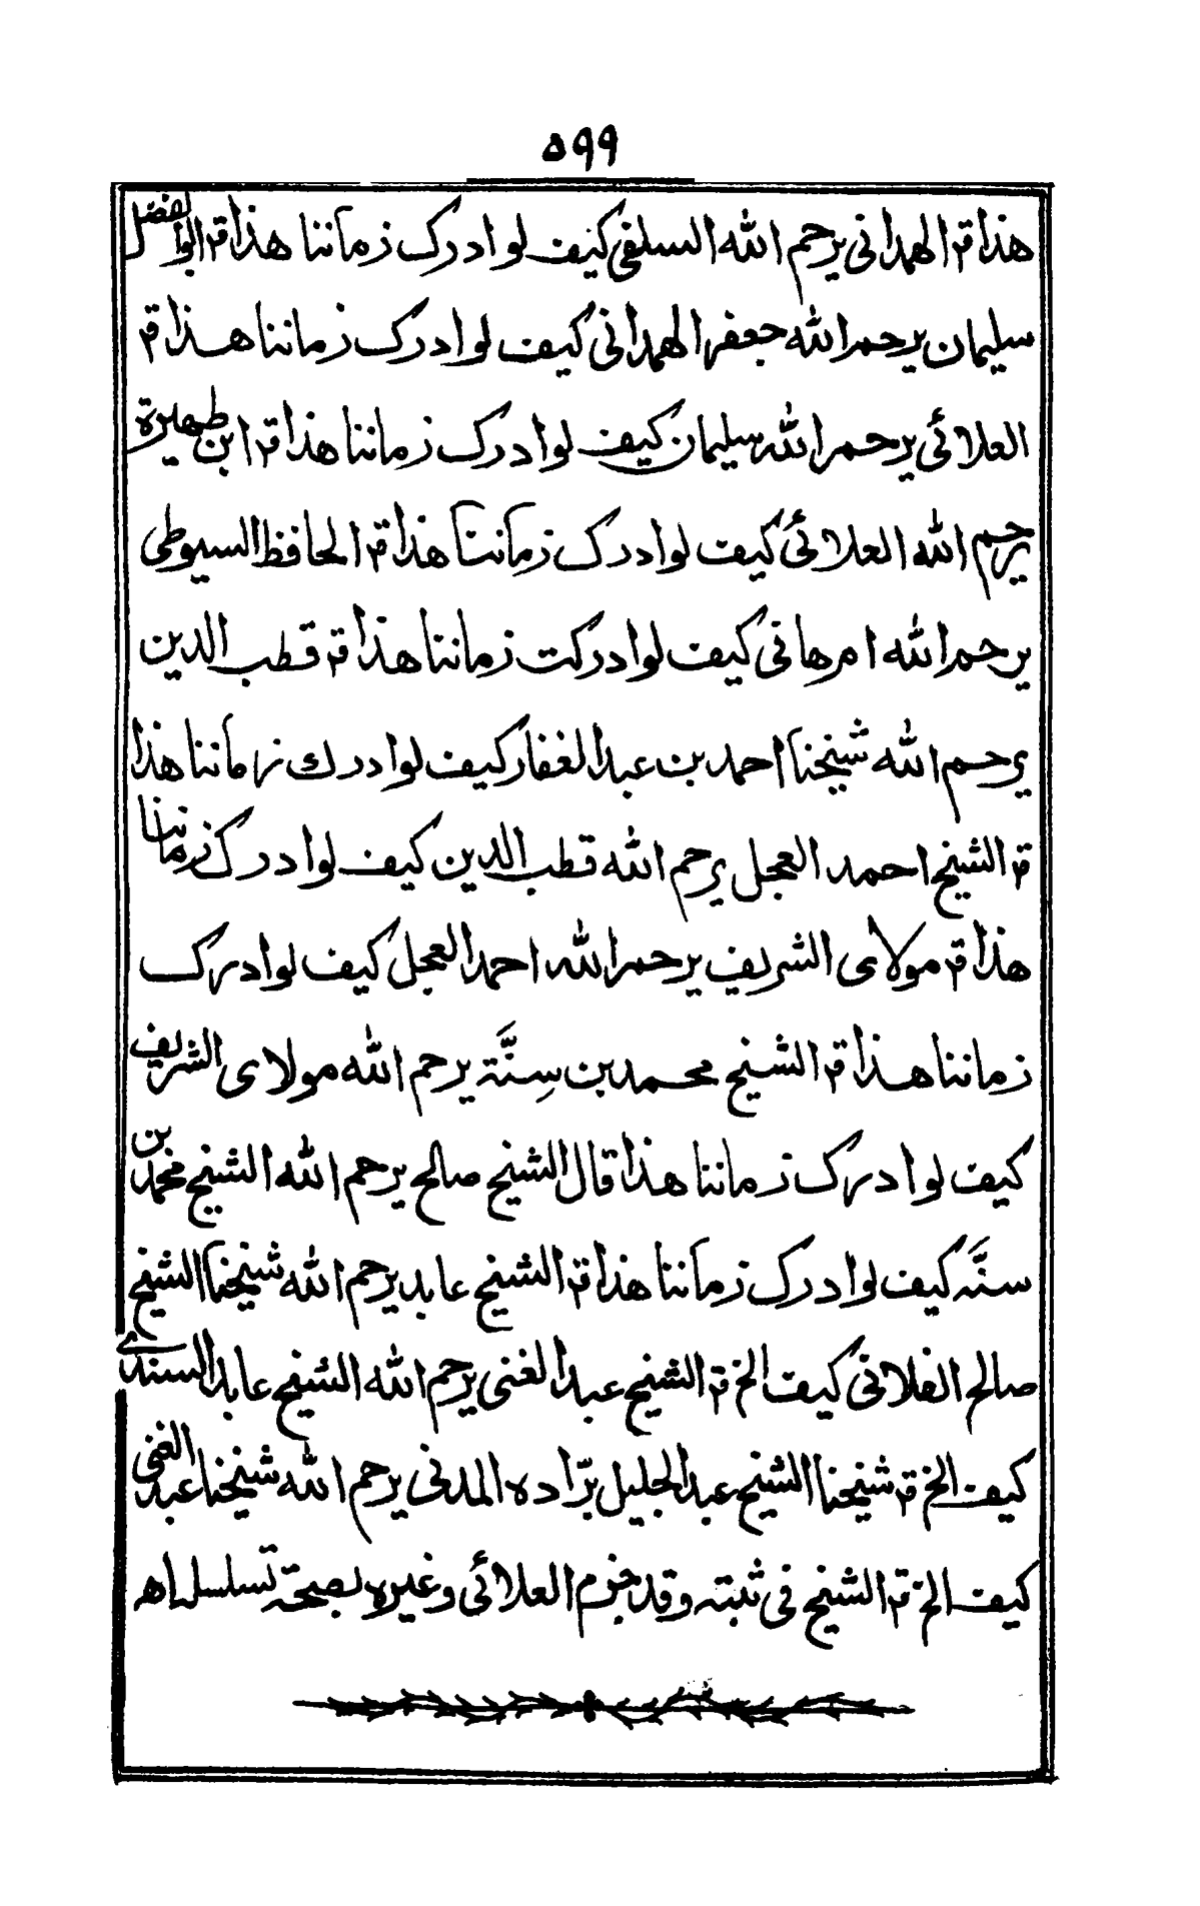 ٥٩٩
هذا قـ الهمدانی یرحم الله السلفی کیف لو ادرک زماننا هذا قـ ابوالفضل
سلیمان یرحم الله جعفر الهمدانی کیف لو ادرک زماننا هذا قـ
العلائی یرحم الله سلیمان کیف لو ادرک زماننا هذا قـ ابن ظهیرة
یرحم الله العلائی کیف لو ادرک زماننا هذا قـ الحافظ السیوطی
یرحم الله ام هانی کیف لو ادرکت زماننا هذا قـ قطب الدین
یرحم الله شیخنا احمد بن عبد الغفار کیف لو ادرك زماننا هذا
قـ الشیخ احمد العجل یرحم الله قطب الدین کیف لو ادرک زماننا
هذا قـ مولای الشریف یرحم الله احمد العجل کیف لو ادرک
زماننا هذا قـ الشیخ محمد بن سِنَّة یرحم الله مولای الشریف
کیف لو ادرک زماننا هذا قال الشیخ صالح یرحم الله الشیخ محمد بن
سنَّه کیف لو ادرک زماننا هذا قـ الشیخ عابد یرحم الله شیخنا الشیخ
صالح الفلانی کیف الخ قـ الشیخ عبد الغنی یرحم الله الشیخ عابد السندی
کیف الخ قـ شیخنا الشیخ عبد الجلیل برّاده المدنی یرحم الله شیخنا عبد الغنی
کیف الخ قـ الشیخ فی ثبته وقد جزم العلائی وغیره بصحة تسلسله اهـ